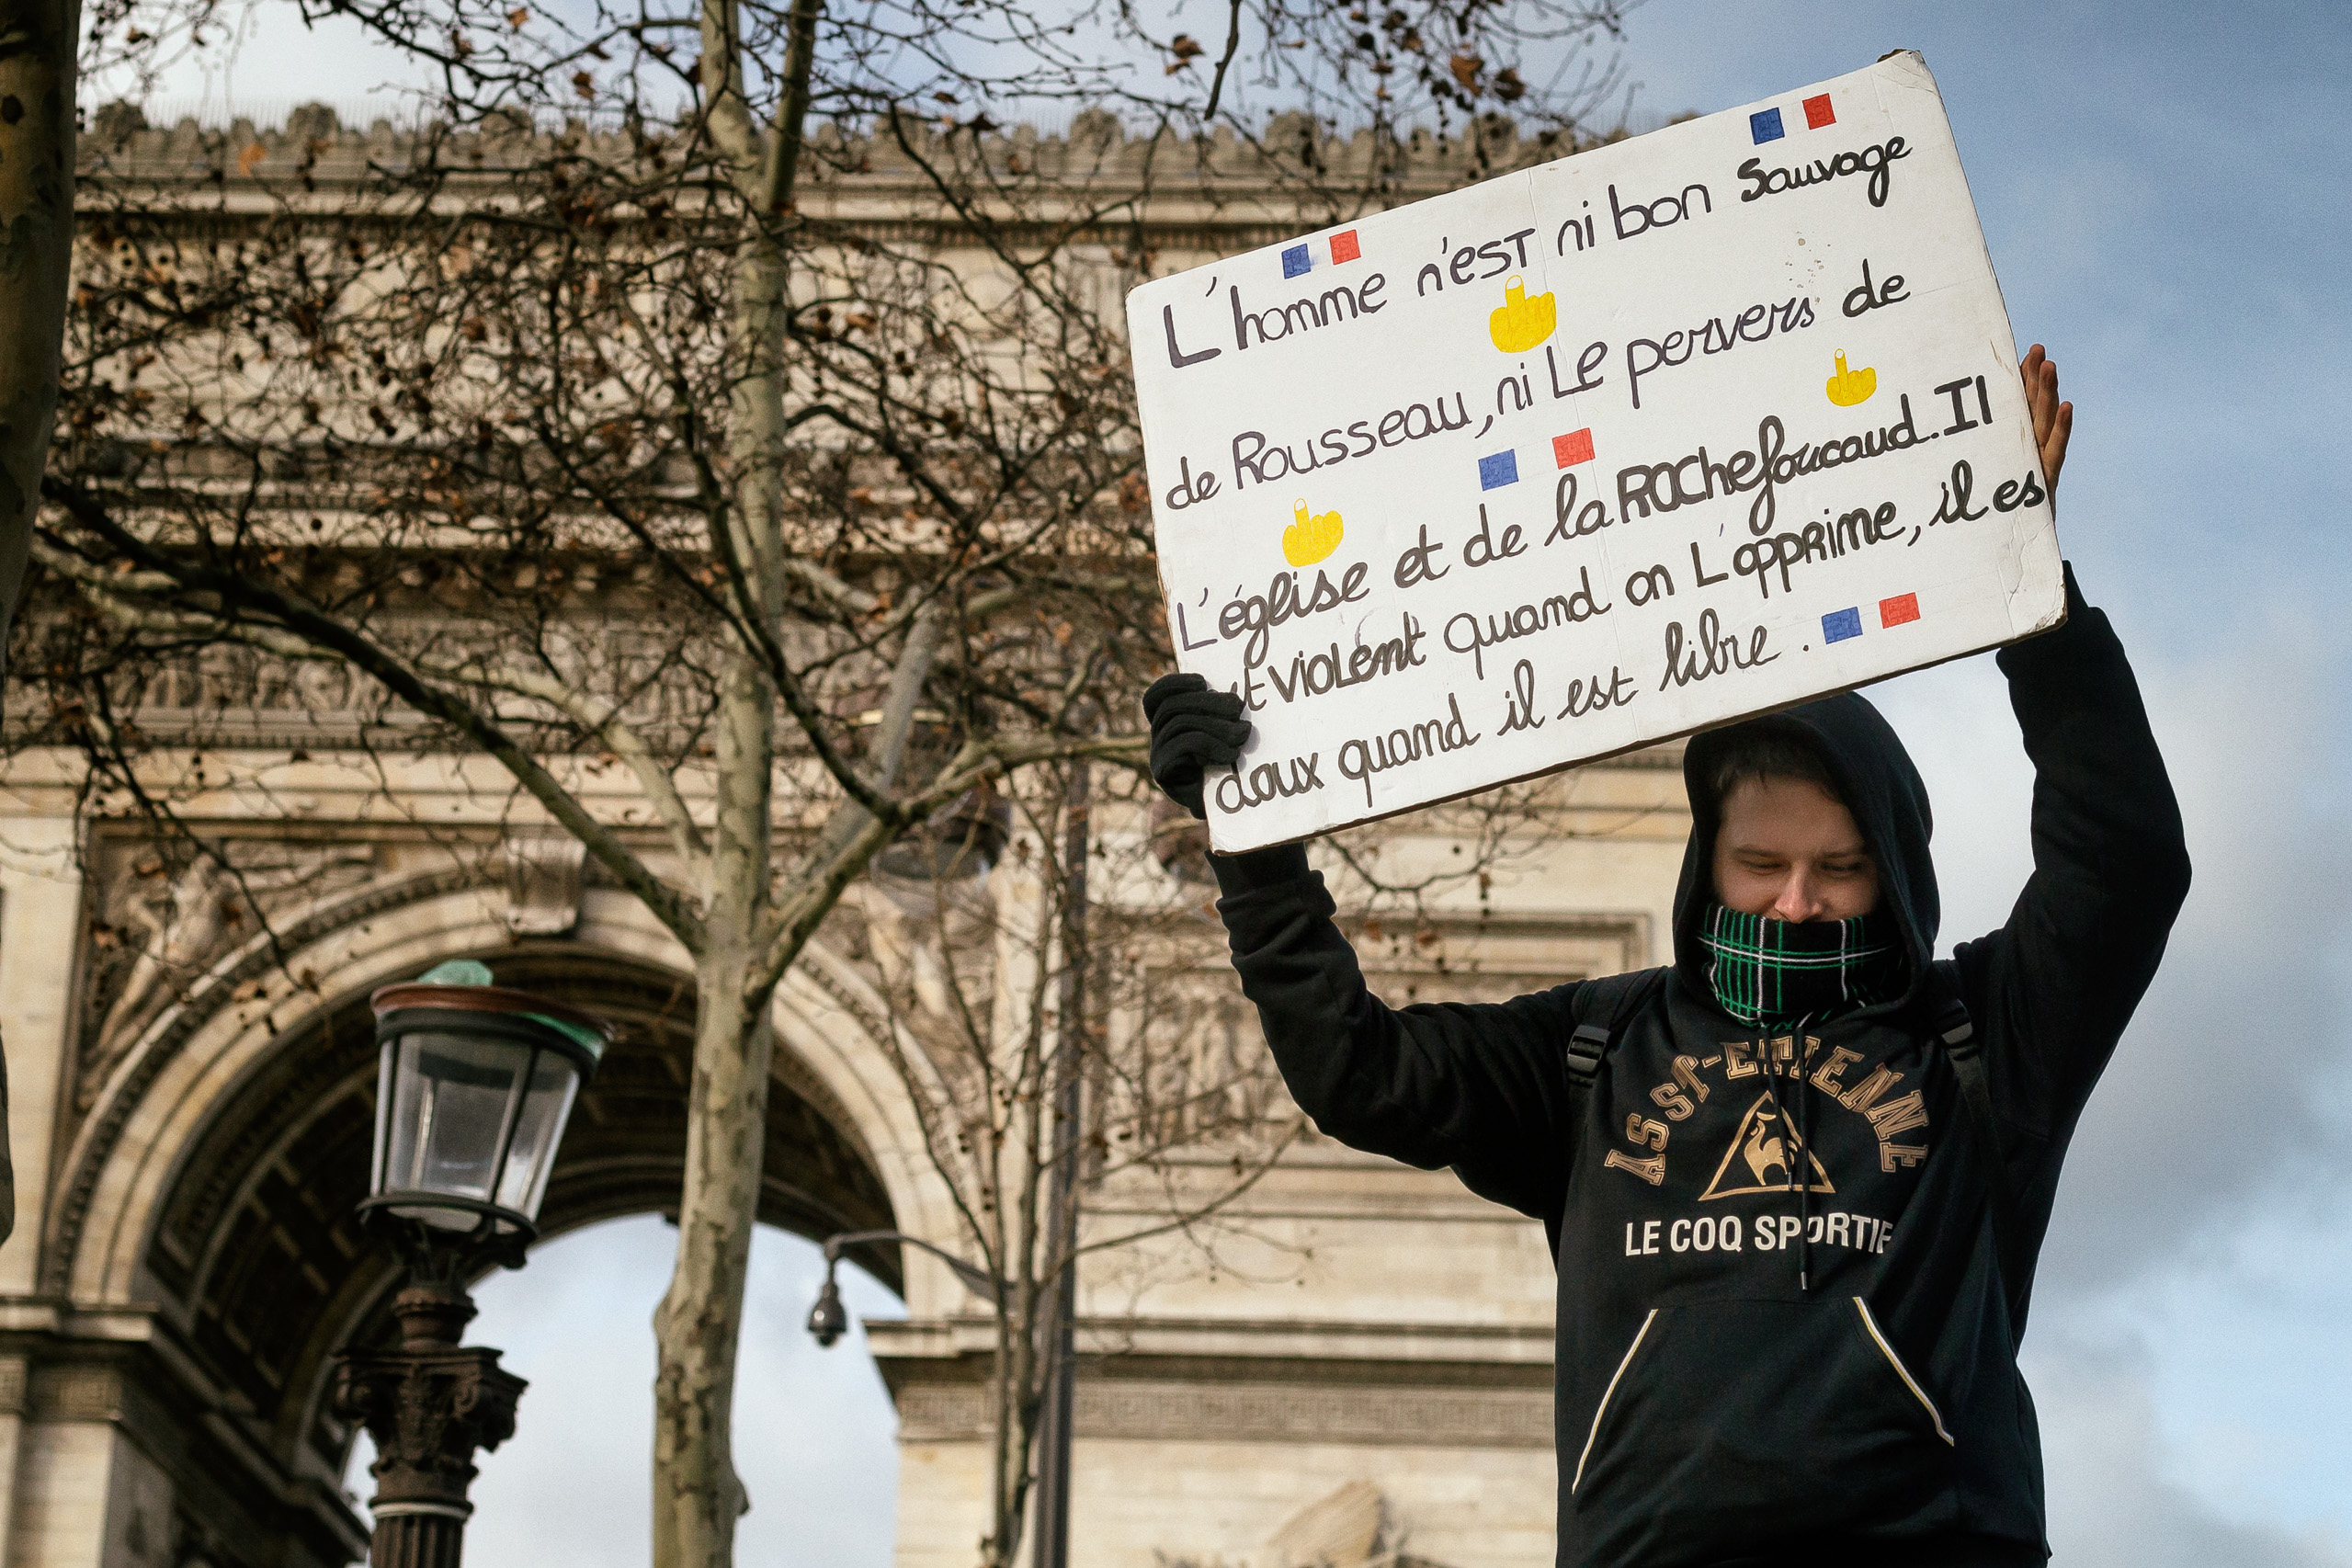 L'homme n'est ni bon Sauvage
de Rousseau, ni Le pervers de
L'église et de la ROChefoucaud. Il
est VIOLent quand on L'opprime, il es
doux quand il est libre.
AS ST-ETIENNE
LE COQ SPORTIF